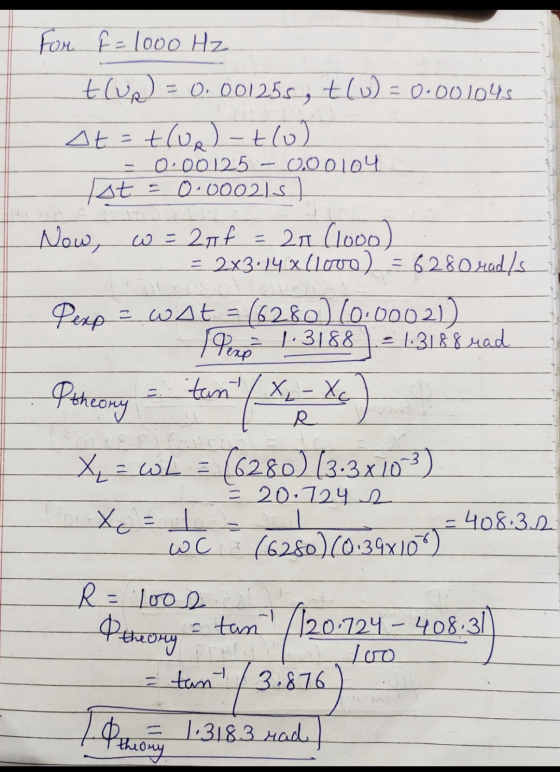 For f = 1000 Hz
t(υ_R) = 0.00125s, t(υ) = 0.00104s
Δt = t(υ_R) - t(υ)
= 0.00125 - 0.00104
Δt = 0.00021s
Now, ω = 2πf = 2π(1000)
= 2×3.14×(1000) = 6280 rad/s
Φexp = ωΔt = (6280)(0.00021)
Φexp = 1.3188 = 1.3188 rad
Φtheory = tan⁻¹(X_L - X_C / R)
X_L = ωL = (6280)(3.3×10⁻³)
= 20.724 Ω
X_C = 1/ωC = 1/(6280)(0.39×10⁻⁶) = 408.3Ω
R = 100Ω
Φtheory = tan⁻¹(|20.724 - 408.3|/100)
= tan⁻¹(3.876)
Φtheory = 1.3183 rad